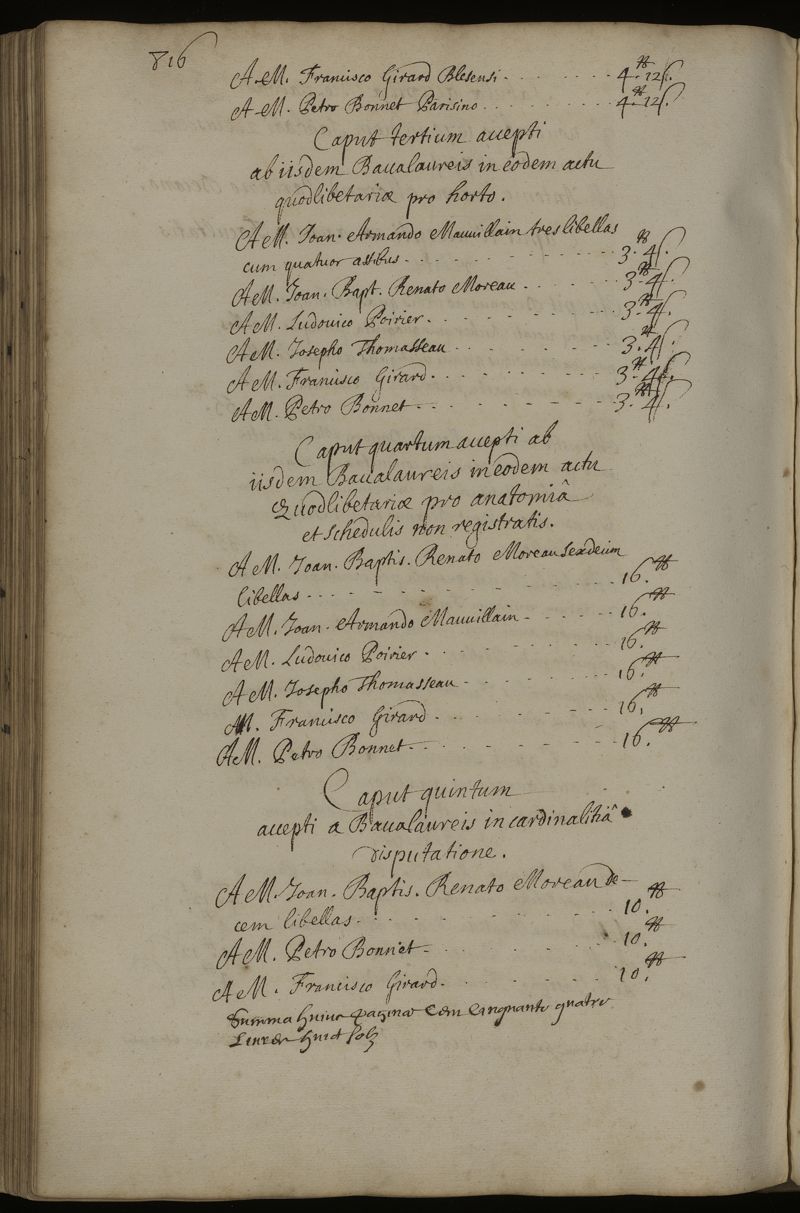 816
A M. Francisco Girard Blesensi . . . . . . . 4.tt 12 s.
A M. Petro Bonnet Parisino . . . . . . . . 4.tt 12 s.
Caput tertium accepti
ab iisdem Baccalaureis in eodem actu
quodlibetariæ pro horto.
A M. Joan. Armando Mauuillain tres libellas
cum quatuor assibus . . . . . . . . . . . 3.tt 4 s.
A M. Joan. Bapt. Renato Moreau . . . . . . 3.tt 4 s.
A M. Ludouico Poirier . . . . . . . . . . 3.tt 4 s.
A M. Josepho Thomasseau . . . . . . . . 3.tt 4 s.
A M. Francisco Girard . . . . . . . . . . 3.tt 4 s.
A M. Petro Bonnet . . . . . . . . . . . 3.tt 4 s.
Caput quartum accepti ab
iisdem Baccalaureis in eodem actu
Quodlibetariæ pro anatomiâ
et schedulis non registratis.
A M. Joan. Baptis. Renato Moreau sexdecim
libellas . . . . . . . . . . . . . . 16.tt
A M. Joan. Armando Mauuillain . . . . . . 16.tt
A M. Ludouico Poirier . . . . . . . . . . 16.tt
A M. Josepho Thomasseau . . . . . . . . 16.tt
A M. Francisco Girard . . . . . . . . . . 16.tt
A M. Petro Bonnet . . . . . . . . . . . 16.tt
Caput quintum
accepti a Baccalaureis in cardinalitiâ
disputatione.
A M. Joan. Baptis. Renato Moreau de-
cem libellas . . . . . . . . . . . . 10.tt
A M. Petro Bonnet . . . . . . . . . . 10.tt
A M. Francisco Girard . . . . . . . . . 10.tt
Summa huius paginæ Cent Cinquante quatre
Liures huict solz